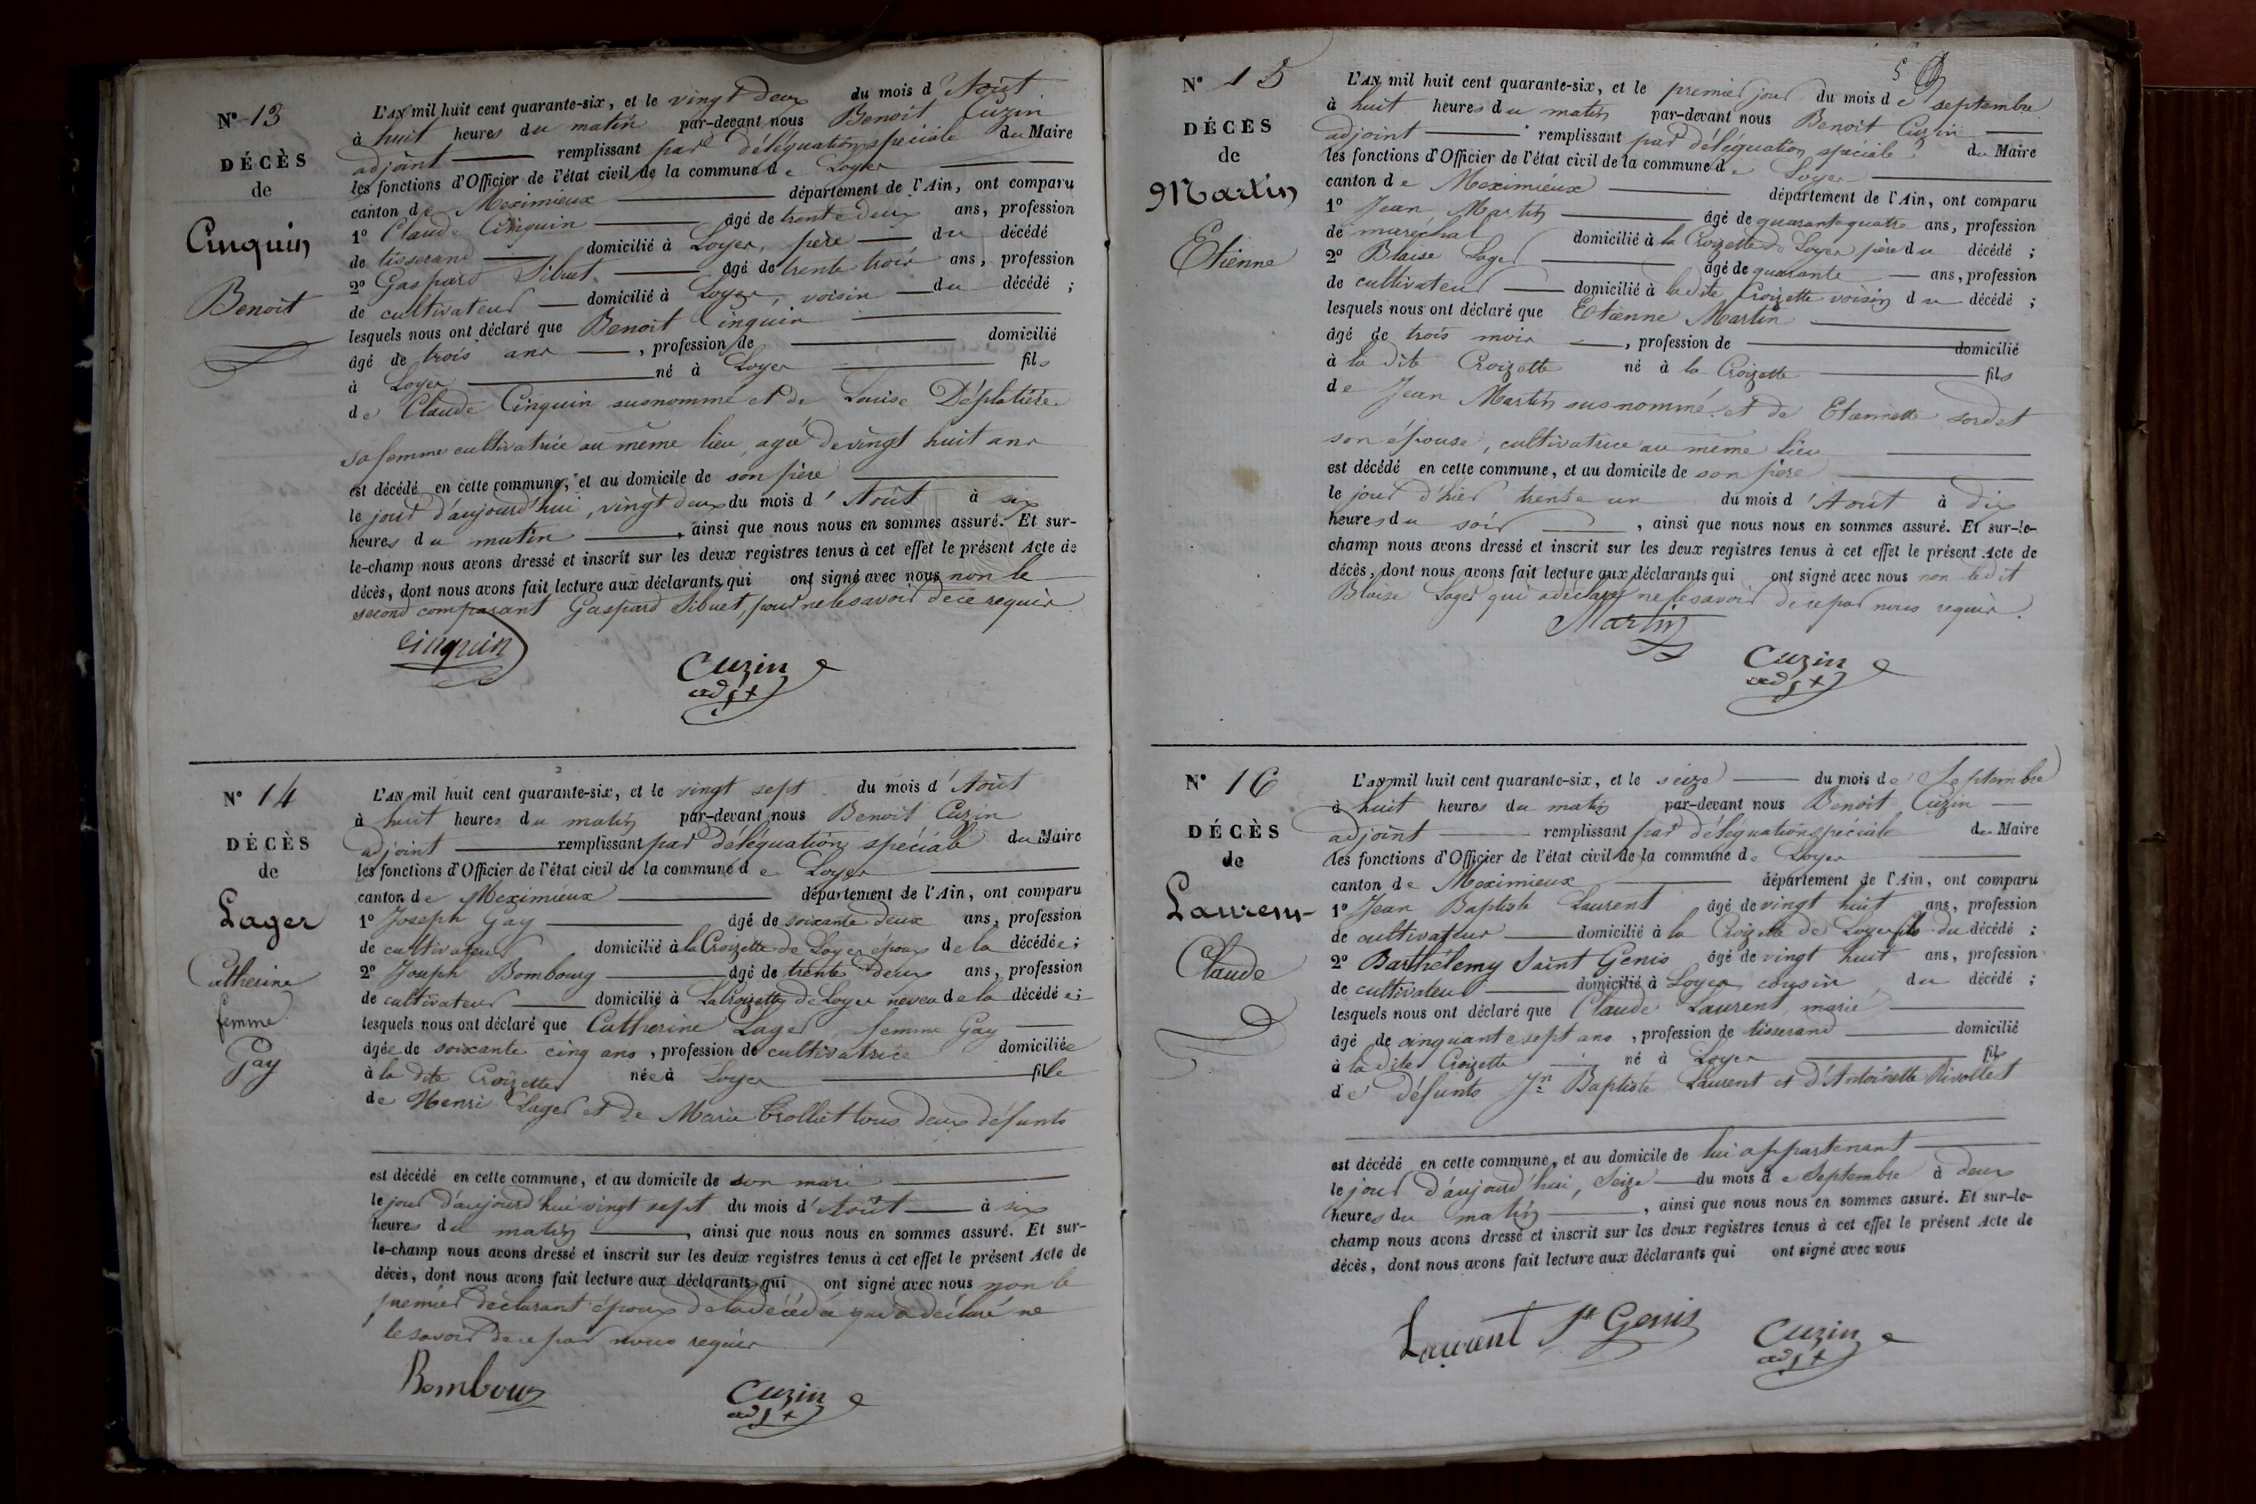 N° 13
DÉCÈS
de
Cinquin
Benoit
L'AN mil huit cent quarante-six, et le vingt deux du mois d'Août
à huit heures du matin par-devant nous Benoit Cuzin
adjoint remplissant par délégation spéciale du Maire
les fonctions d'Officier de l'état civil de la commune de Loyer
canton de Meximieux département de l'Ain, ont comparu
1° Claude Cinquin âgé de trente deux ans, profession
de tisserand domicilié à Loyer, père du décédé
2° Gaspard Sibuet âgé de trente trois ans, profession
de cultivateur domicilié à Loyer, voisin du décédé ;
lesquels nous ont déclaré que Benoit Cinquin
âgé de trois ans , profession de domicilié
à Loyer né à Loyer fils
de Claude Cinquin susnommé et de Louise Déplatière
sa femme cultivatrice au même lieu, agée de vingt huit ans
est décédé en cette commune, et au domicile de son père
le jour d'aujourd'hui, vingt deux du mois d'Août à six
heures du matin , ainsi que nous nous en sommes assuré. Et sur-
le-champ nous avons dressé et inscrit sur les deux registres tenus à cet effet le présent Acte de
décès, dont nous avons fait lecture aux déclarants qui ont signé avec nous non le
second comparant Gaspard Sibuet, pour ne le savoir de ce requis
Cinquin
Cuzin
adjt
N° 14
DÉCÈS
de
Lager
Catherine
femme
Gay
L'AN mil huit cent quarante-six, et le vingt sept du mois d'Août
à huit heures du matin par-devant nous Benoit Cuzin
adjoint remplissant par délégation spéciale du Maire
les fonctions d'Officier de l'état civil de la commune de Loyer
canton de Meximieux département de l'Ain, ont comparu
1° Joseph Gay âgé de soixante deux ans, profession
de cultivateur domicilié à la Croizette de Loyer époux de la décédée ;
2° Joseph Bombourg âgé de trente deux ans, profession
de cultivateur domicilié à La Croizette de Loyer neveu de la décédée ;
lesquels nous ont déclaré que Catherine Lager femme Gay
âgée de soixante cinq ans , profession de cultivatrice domiciliée
à la dite Croizette née à Loyer fille
de Henri Lager et de Marie Trolliet tous deux défunts
est décédé en cette commune, et au domicile de son mari
le jour d'aujourd'hui vingt sept du mois d'Août à six
heures du matin , ainsi que nous nous en sommes assuré. Et sur-
le-champ nous avons dressé et inscrit sur les deux registres tenus à cet effet le présent Acte de
décès, dont nous avons fait lecture aux déclarants qui ont signé avec nous non le
premier déclarant époux de la décédée qui a déclaré ne
le savoir de ce par nous requis
Bombour
Cuzin
adjt
N° 15
DÉCÈS
de
Martin
Etienne
L'AN mil huit cent quarante-six, et le premier jour du mois de septembre
à huit heures du matin par-devant nous Benoit Cuzin
adjoint remplissant par délégation spéciale du Maire
les fonctions d'Officier de l'état civil de la commune de Loyer
canton de Meximieux département de l'Ain, ont comparu
1° Jean Martin âgé de quarante quatre ans, profession
de marechal domicilié à la Croizette de Loyer père du décédé ;
2° Blaise Lager âgé de quarante ans, profession
de cultivateur domicilié à ladite Croizette voisin du décédé ;
lesquels nous ont déclaré que Etienne Martin
âgé de trois mois , profession de domicilié
à la dite Croizette né à la Croizette fils
de Jean Martin susnommé et de Etiennette Sordet
son épouse, cultivatrice au même lieu
est décédé en cette commune, et au domicile de son père
le jour d'hier trente un du mois d'Août à dix
heures du soir , ainsi que nous nous en sommes assuré. Et sur-le-
champ nous avons dressé et inscrit sur les deux registres tenus à cet effet le présent Acte de
décès, dont nous avons fait lecture aux déclarants qui ont signé avec nous non ledit
Blaise Lager qui a déclaré ne le savoir de ce par nous requis.
Martin
Cuzin
adjt
N° 16
DÉCÈS
de
Laurent
Claude
L'AN mil huit cent quarante-six, et le seize du mois de Septembre
à huit heures du matin par-devant nous Benoit Cuzin
adjoint remplissant par délégation spéciale du Maire
les fonctions d'Officier de l'état civil de la commune de Loyer
canton de Meximieux département de l'Ain, ont comparu
1° Jean Baptiste Laurent âgé de vingt huit ans, profession
de cultivateur domicilié à la Croizette de Loyer fils du décédé ;
2° Barthélemy Saint Genis âgé de vingt huit ans, profession
de cultivateur domicilié à Loyer cousin du décédé ;
lesquels nous ont déclaré que Claude Laurent, marié
âgé de cinquante sept ans , profession de tisserand domicilié
à la dite Croizette né à Loyer fils
de défunts Jn Baptiste Laurent et d'Antoinette Rivollet
est décédé en cette commune, et au domicile de lui appartenant
le jour d'aujourd'hui, Seize du mois de Septembre à deux
heures du matin , ainsi que nous nous en sommes assuré. Et sur-le-
champ nous avons dressé et inscrit sur les deux registres tenus à cet effet le présent Acte de
décès, dont nous avons fait lecture aux déclarants qui ont signé avec nous
Laurent St Genis
Cuzin
adjt